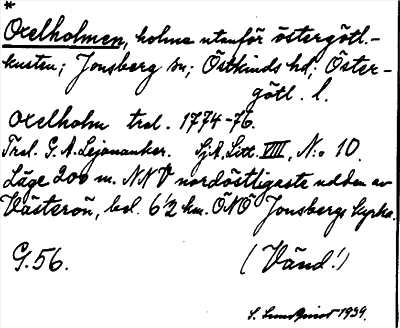 *
Oxelholmen, holme utanför östergötl.-
kusten; Jonsberg sn; Östkinds hd; Öster-
götl. l.
Oxelholm trol. 1774-76.
Trol. G. A. Lejonanker. SjA. Litt. VIII, N:o 10.
Läge 200 m. NNV nordöstligaste udden av
Västerön, bel. 6½ km. ÖNÖ Jonsbergs kyrka.
G. 56. (Vänd!)
S. Sundqvist 1939.